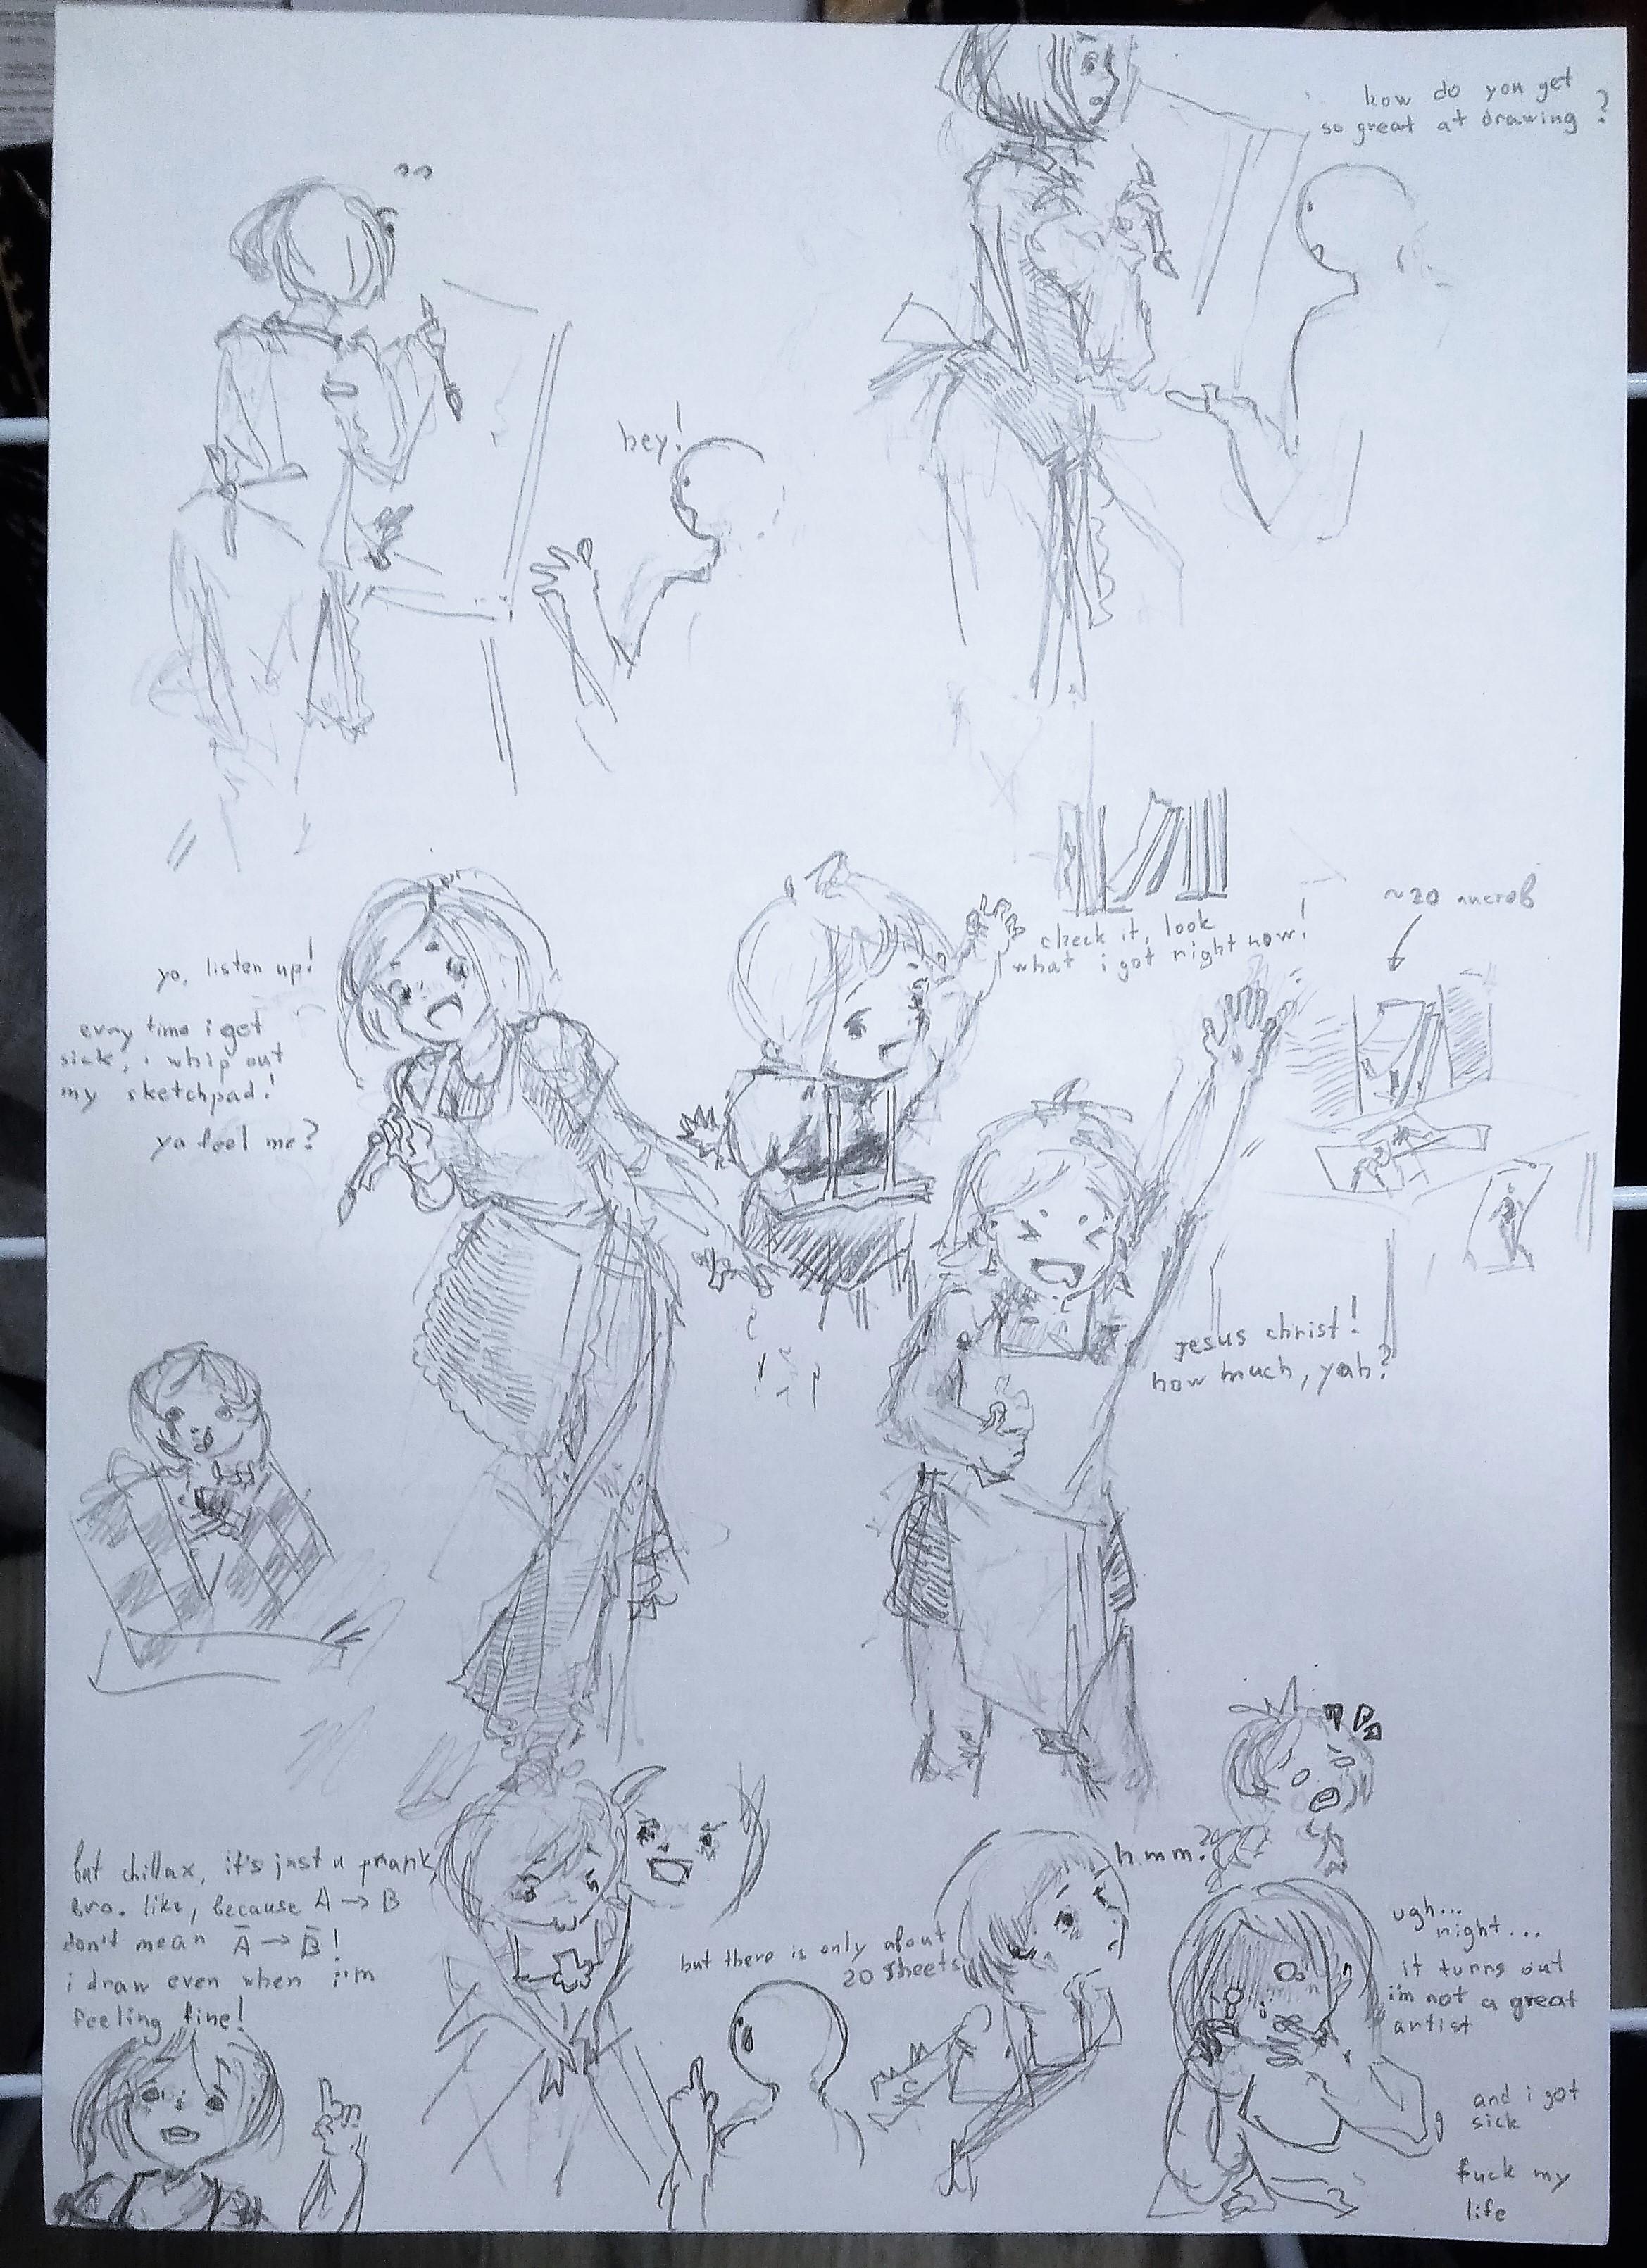 how do you get
so great at drawing?
hey!
yo, listen up!
evry time i get
sick, i whip out
my sketchpad!
ya feel me?
check it, look
what i got right now!
~20 листов
jesus christ!
how much, yah?
but chillax, it's just a prank
bro. like, because A → B
don't mean Ā → B̄!
i draw even when i'm
feeling fine!
but there is only about
20 sheets
hmm?
ugh...
right...
it turns out
i'm not a great
artist
and i got
sick
fuck my
life